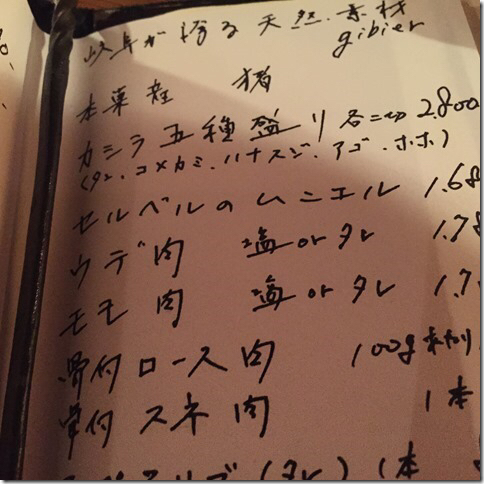 岐阜が誇る天然素材
gibier
本巣産 猪
カシラ五種盛り 各二切 2.800
(タン.コメカミ.ハナスジ.アゴ.ホホ)
セルベルのムニエル 1.68
ウデ肉 塩orタレ 1.78
モモ肉 塩orタレ 1.7
骨付ロース肉 100g
骨付スネ肉 1本
(タレ) 1本